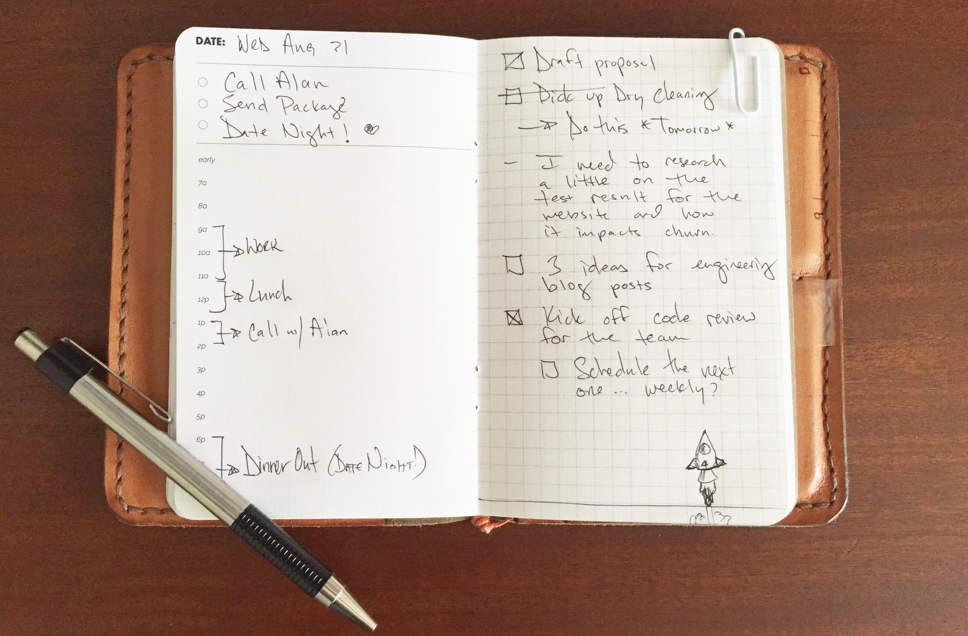 DATE: Wed Aug 21
Call Alan
Send Package
Date Night!
early
7a
8a
9a
10a
Work
11a
Lunch
12p
1p
Call w/ Alan
2p
3p
4p
5p
6p
Dinner Out (Date Night!)
Draft proposal
Pick up Dry Cleaning
→ Do this *Tomorrow*
- I need to research
a little on the
test result for the
website and how
it impacts churn.
3 ideas for engineering
blog posts
Kick off code review
for the team
Schedule the next
one ... weekly?